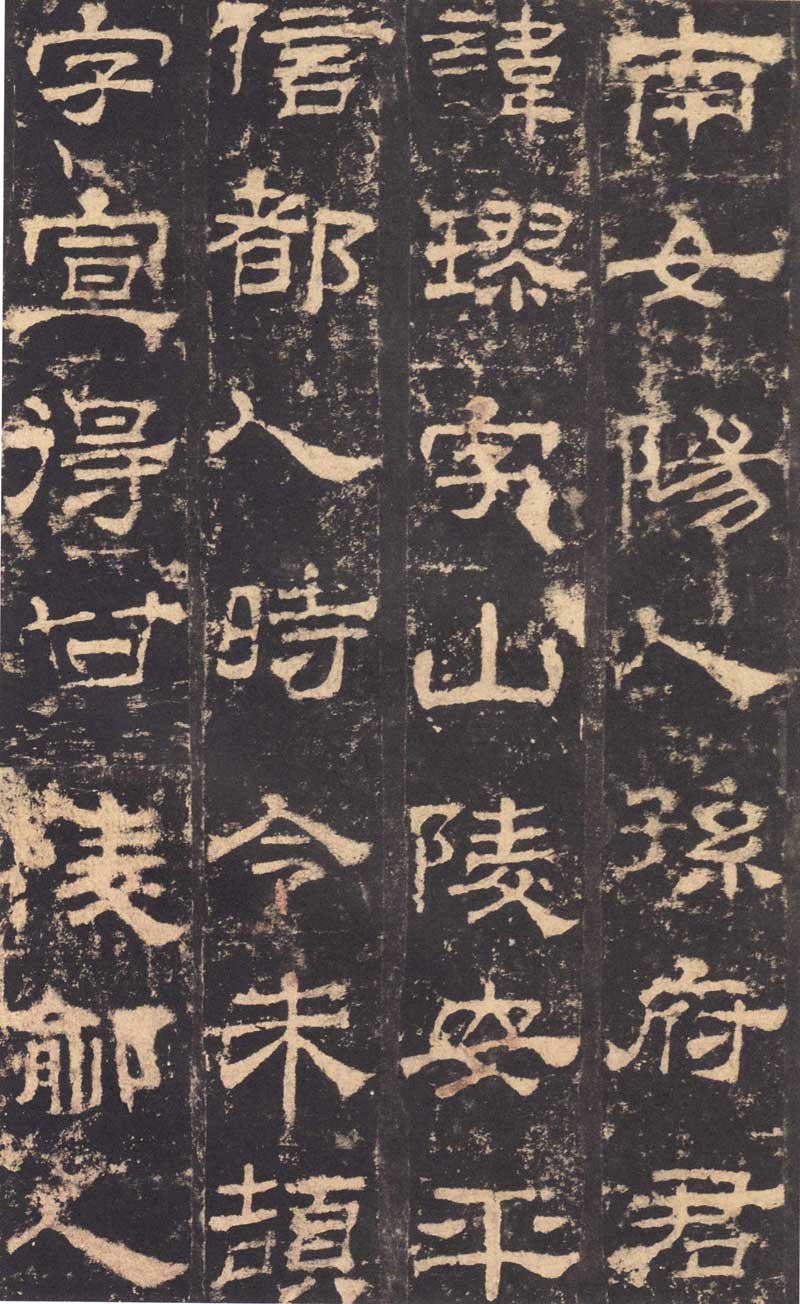 南女陽人孫府君
諱璆字山陵安平
信都人時令朱頡
字宣得甘陵鄃人